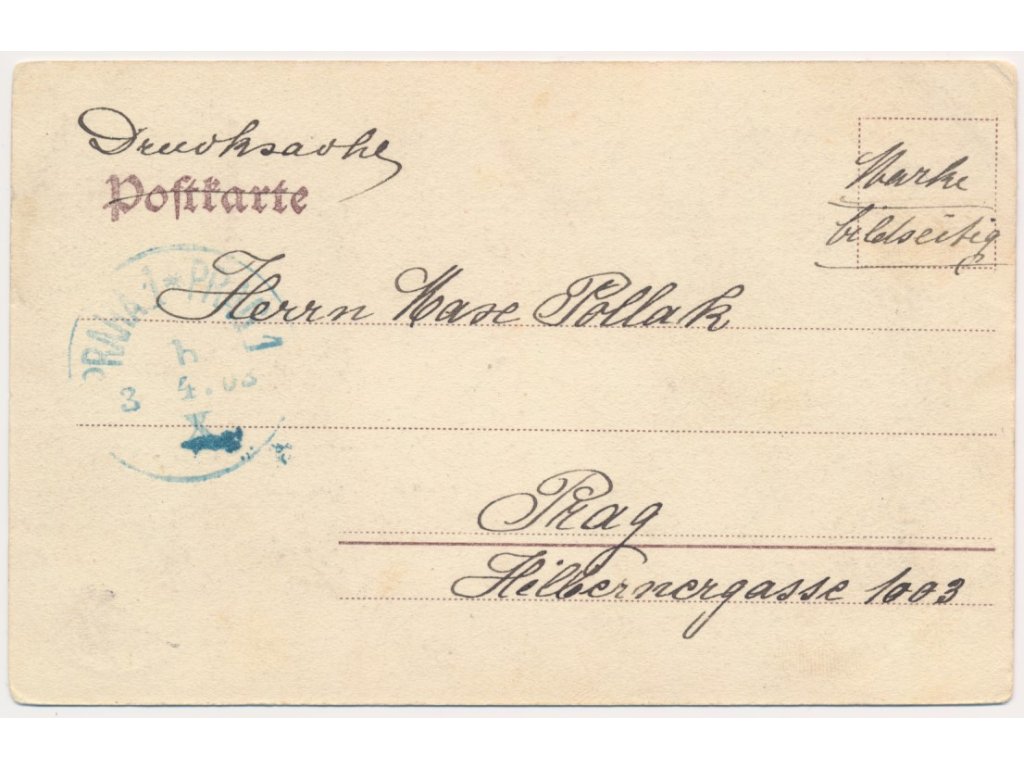 Drucksache
Postkarte
Marke
bildseitig
Herrn Maxe Pollak
PRAHA 1 * PRAG 1
3 4.03
X
Prag
Hibernergasse 1003